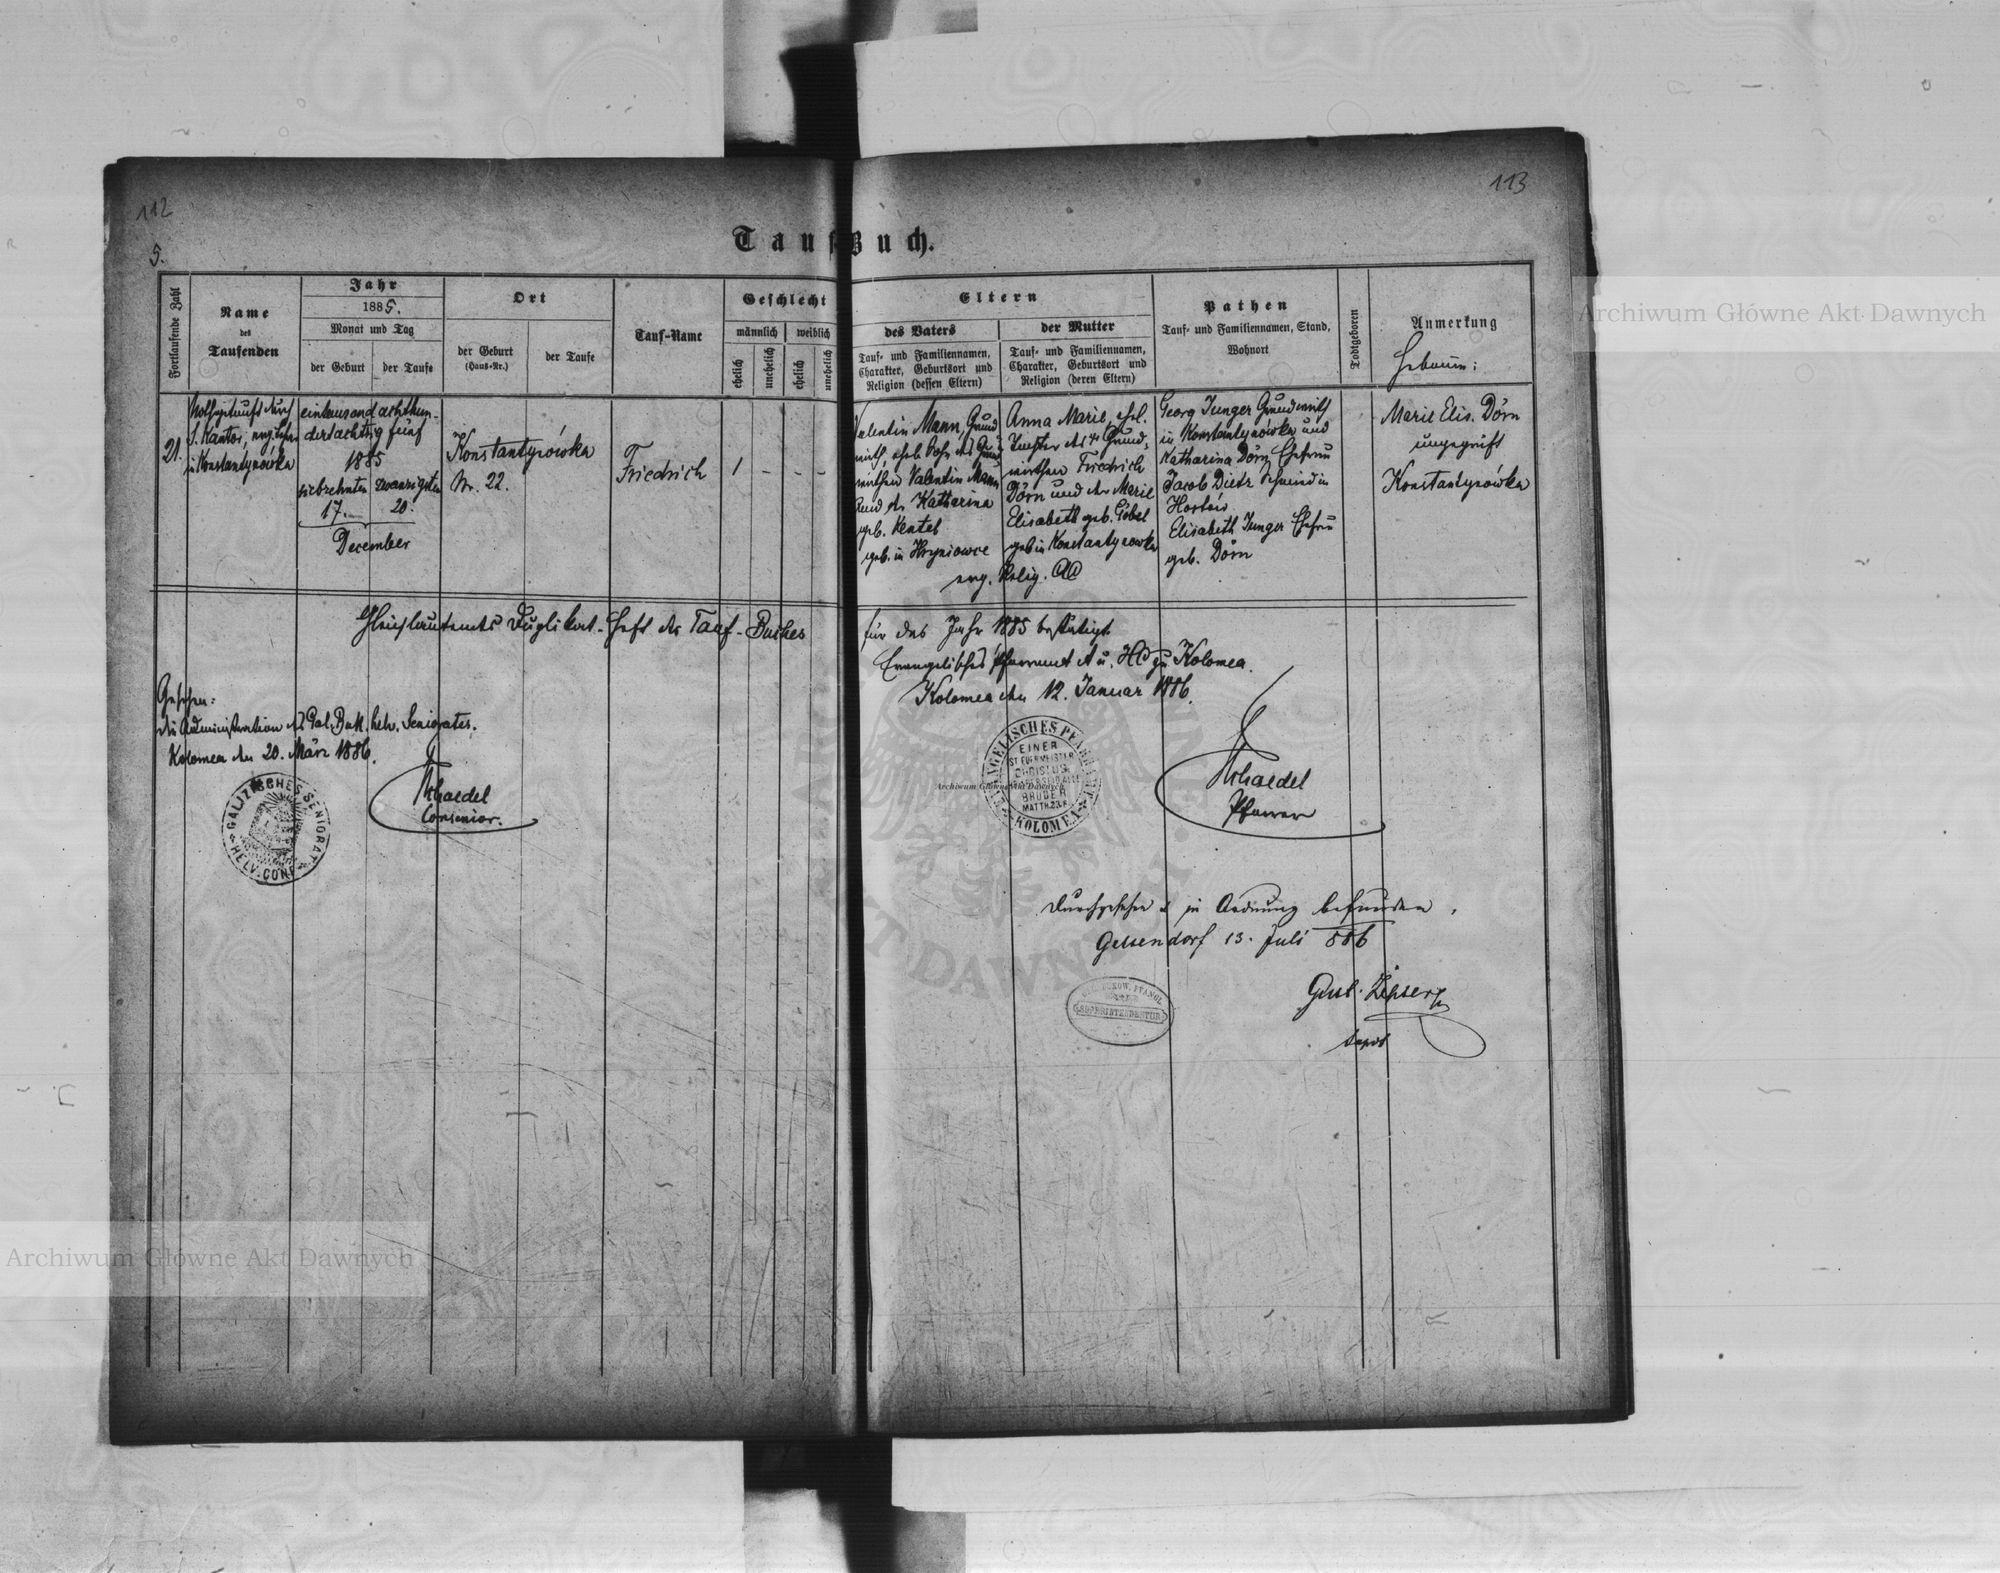 112
113
5.
Taufbuch.
Fortlaufende Zahl
Name
des
Taufenden
Jahr
1885.
Monat und Tag
der Geburt
der Taufe
Ort
der Geburt
(Haus-Nr.)
der Taufe
Tauf-Name
Geschlecht
männlich
weiblich
ehelich
unehelich
ehelich
unehelich
Eltern
des Vaters
Tauf- und Familiennamen,
Charakter, Geburtsort und
Religion (dessen Eltern)
der Mutter
Tauf- und Familiennamen,
Charakter, Geburtsort und
Religion (deren Eltern)
Pathen
Tauf- und Familiennamen, Stand,
Wohnort
Todtgeboren
Anmerkung
Hebamme:
21.
Nothgetauft durch
Kantor, evg. Lehrer
in Konstantynówka
eintausend achthun-
dertachtzig fünf
1885
siebzehnten
17.
zwanzigsten
20.
December
Konstantynówka
Nr. 22.
Friedrich
1 - - -
Valentin Mann, Grund
wirth, ehel. Sohn des Grund
wirthen Valentin Mann
und der Katharina
geb.
geb. in Hryniowce
Anna Marie, ehel.
Tochter des Grund-
wirthen Friedrich
Dörn und der Marie
Elisabeth geb. Göbel
geb in Konstantynowka
evg. Relig. AC
Georg Junger Grundwirth
in Konstantynówka und
Katharina Dörn Ehefrau
Jacob Dietz Schmied in
Elisabeth Junger Ehefrau
geb. Dörn
Marie Elis. Dörn
ungeprüft
Konstantynówka
Gleichlautendes Duplikat-Heft des Tauf-Buches
für das Jahr 1885 bestätigt.
Evangelisches Pfarramt A u. HC zu Kolomea.
Kolomea den 12. Januar 1886.
Gesehen:
die Administration des Gal. Buk. helv. Seniorates.
Kolomea den 20. März 1886.
Consenior.
GALIZISCHES SENIORAT
HELV. CONF.
EVANGELISCHES PFARRAMT
EINER
IST EUER MEISTER
CHRISTUS
BRÜDER
MATTH. 23.8
KOLOMEA
Pfarrer
Durchgesehen & in Ordnung befunden.
Gelsendorf 13. Juli 886
SUPERINTENDENTUR
Archiwum Główne Akt Dawnych
Archiwum Główne Akt Dawnych
Archiwum Główne Akt Dawnych